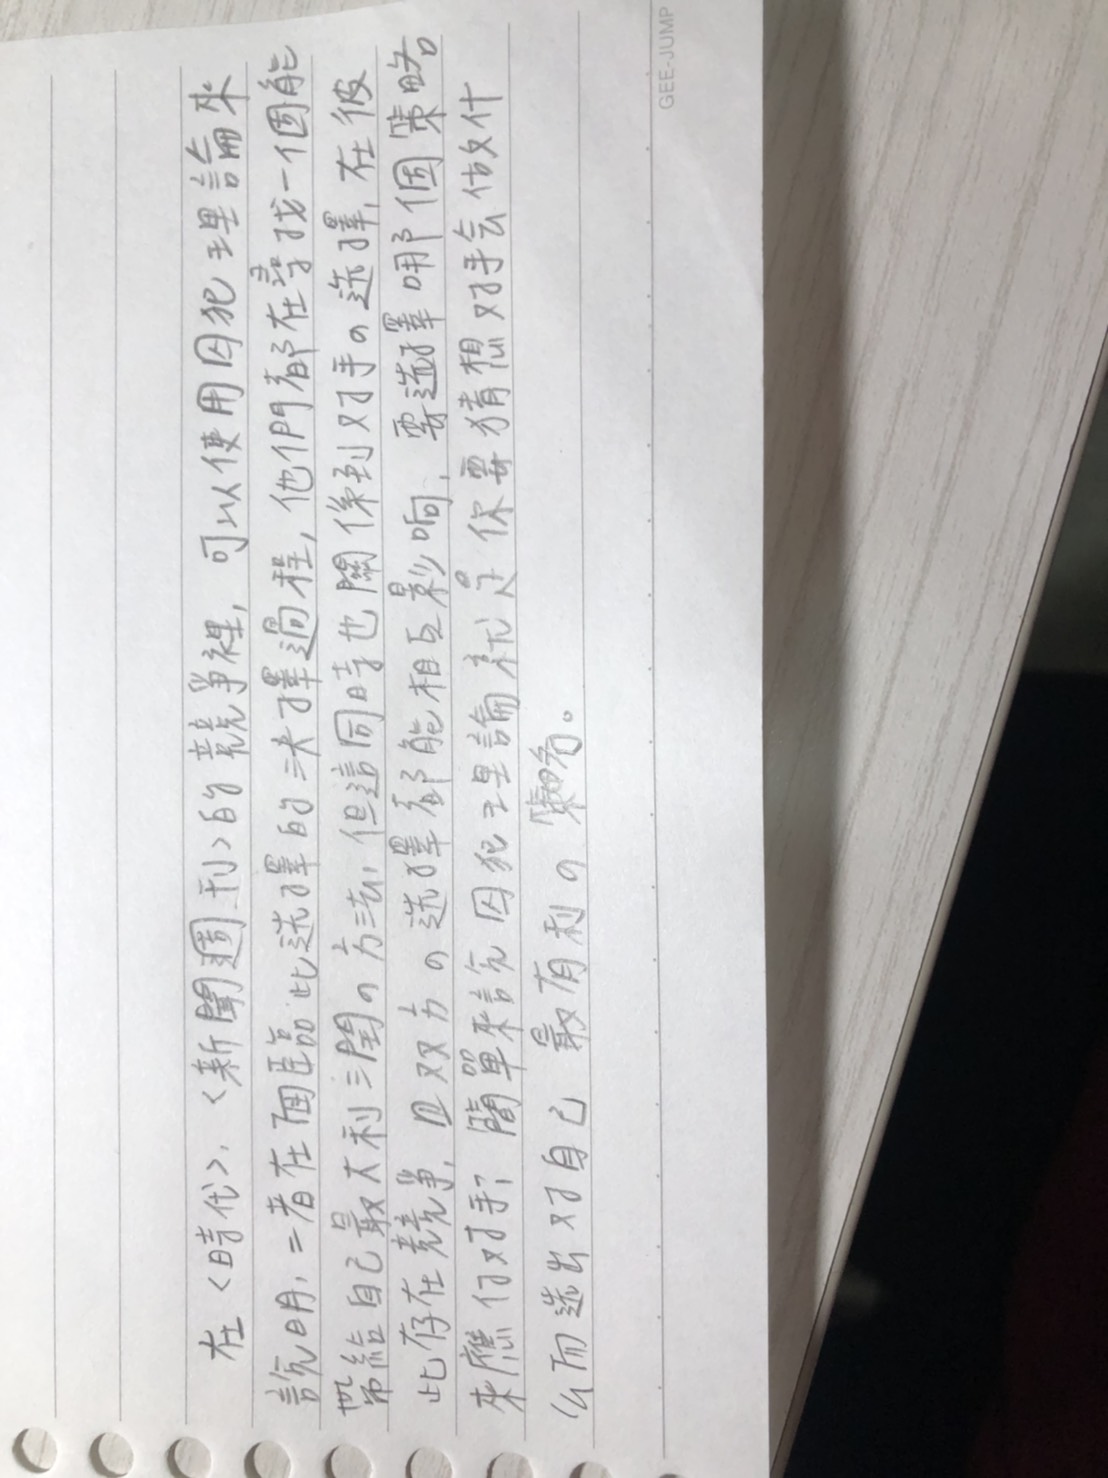 在<時代>、<新聞週刊>的競爭裡，可以使用囚犯理論來
說明，二者在面臨此選擇的決擇過程，他們都在尋找一個能
帶給自己最大利潤の方法，但這同時也關係到对手の选擇，在彼
此存在競爭，且双方の选擇都能相互影响，要选擇哪個策略
來應付对手，簡單來說囚犯理論就是你要猜想对手会做什
么而选出对自己最有利の策略。
GEE-JUMP